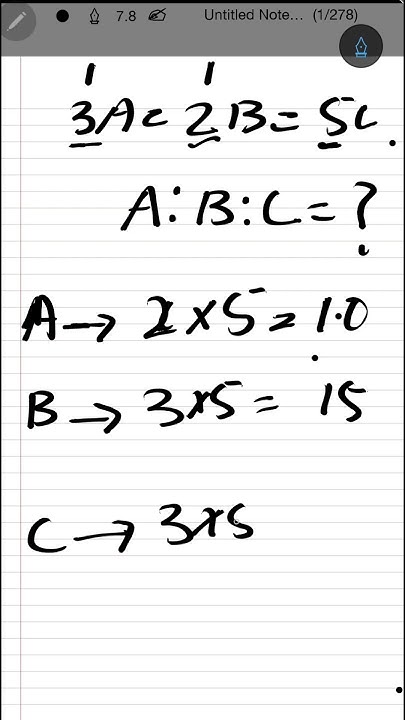 7.8 Untitled Note... (1/278)
1 1
3A = 2B = 5C
A:B:C = ?
A → 2 x 5 = 1.0
B → 3x5 = 15
C → 3x5